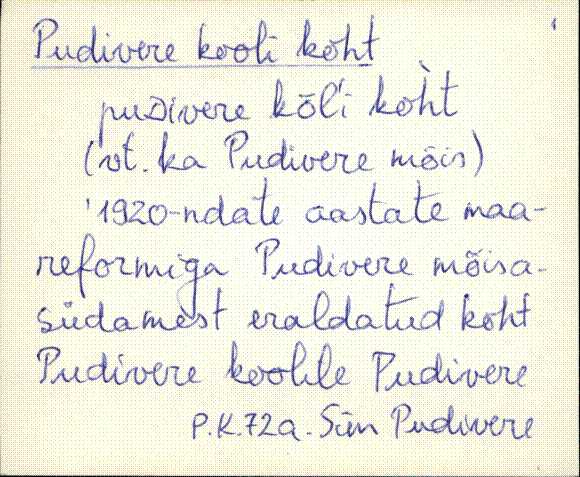 Pudivere kooli koht
puDivere kōl'i koh̀t
(vt. ka Pudivere mõis)
'1920-ndate aastate maa-
reformiga Pudivere mõisa-
südamest eraldatud koht
Pudivere koolile Pudivere
P.K.72a. Siin Pudivere